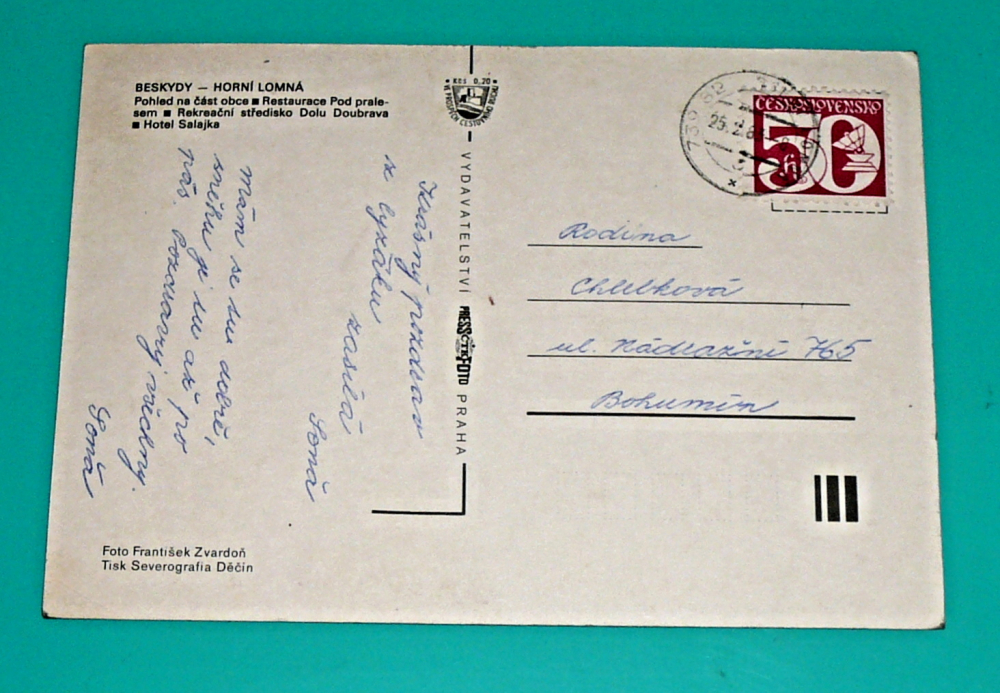 BESKYDY — HORNÍ LOMNÁ
Pohled na část obce ■ Restaurace Pod prale-
sem ■ Rekreační středisko Dolu Doubrava
■ Hotel Salajka
Krásný pozdrav
z lyžáku
zasílá
Soňa
mám se tu dobře,
sněhu je tu až po
pás. Pozdravuj všechny.
Soňa
Foto František Zvardoň
Tisk Severografia Děčín
Kčs 0,20
VYDAVATELSTVÍ PRESSFOTO PRAHA
ČTK
25.2.8
ČESKOSLOVENSKO
50
h
Rodina
Chlebková
ul. Nádražní 765
Bohumín